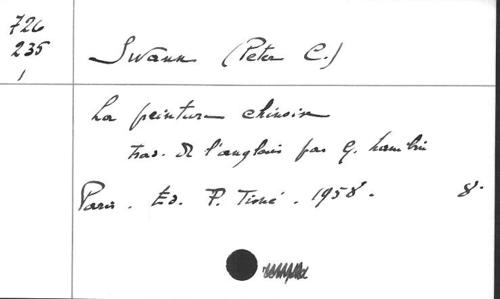 726
235
1
Swann (Peter C.)
La peinture chinoise
trad. de l'anglais par G. Lambin
Paris. Ed. P. Tisné. 1958. 8°